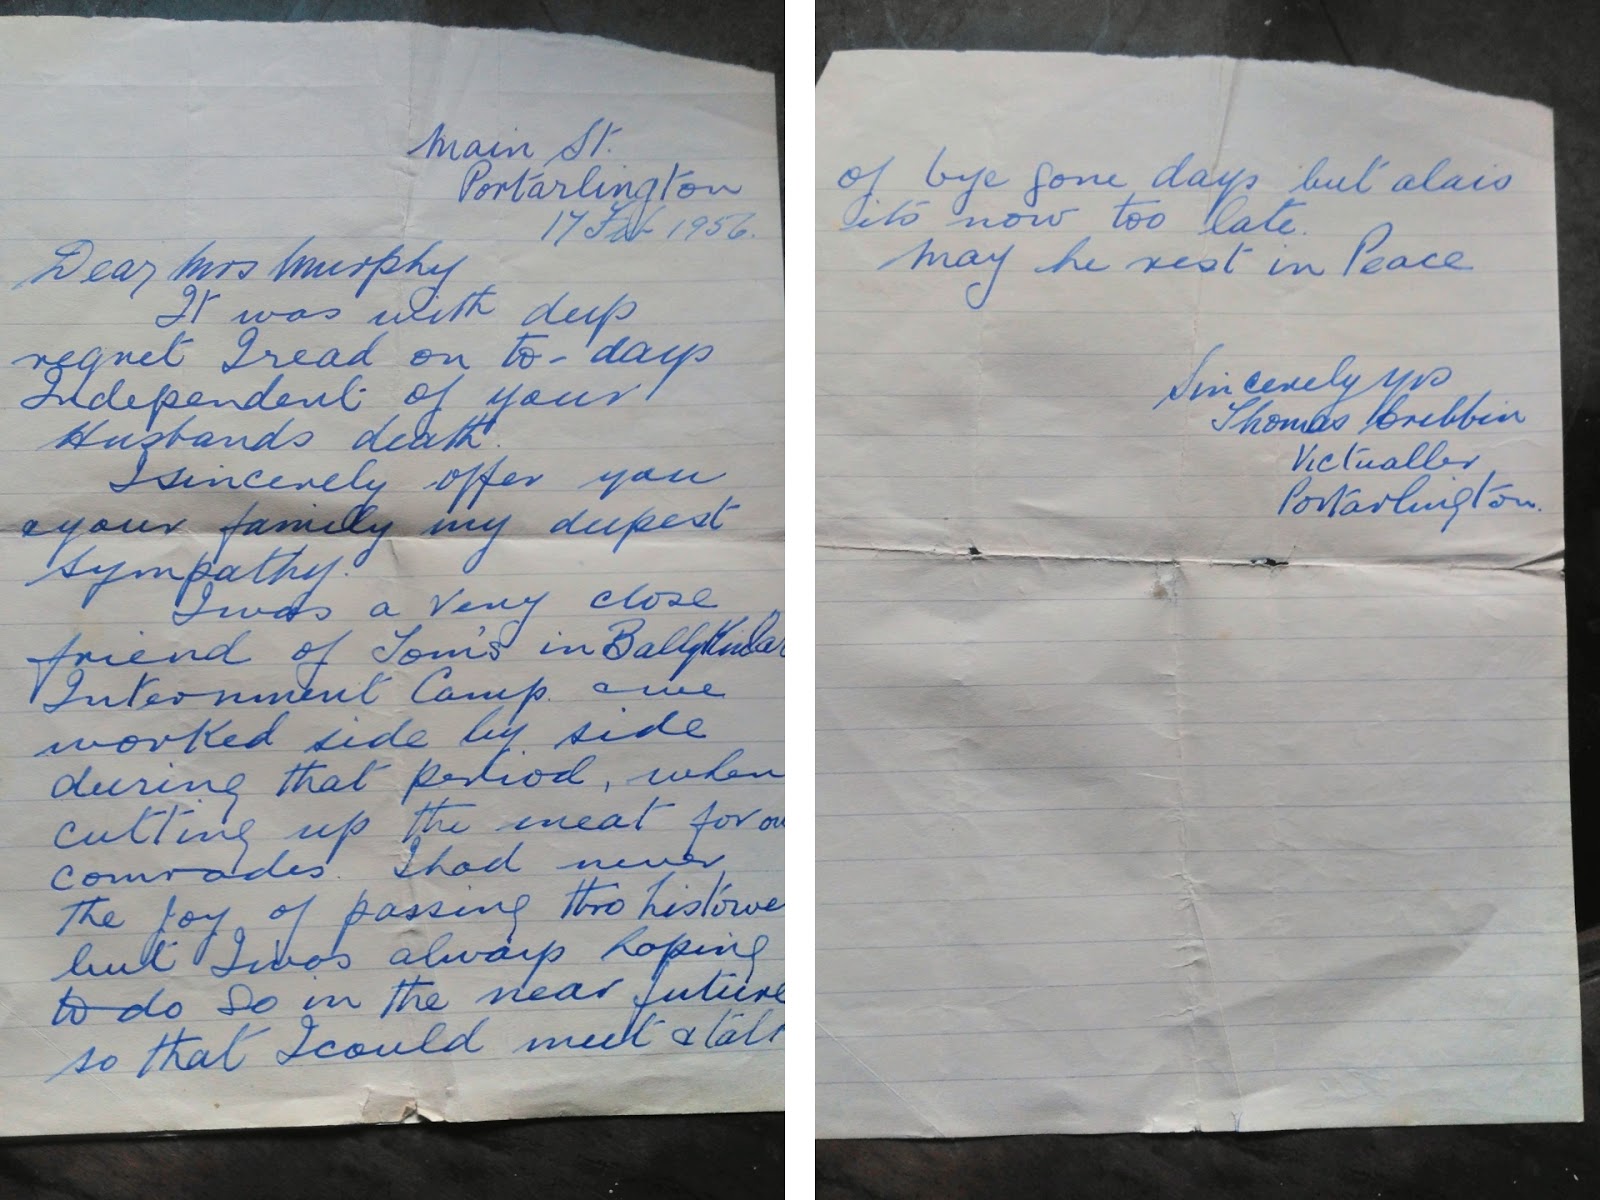 Main St.
Portarlington
17 Feb 1956.
Dear Mrs Murphy
It was with deep
regret I read on to-days
Independent of your
Husbands death.
I sincerely offer you
& your family my deepest
sympathy.
I was a very close
friend of Tom's in BallyKinlar
Internment Camp. & we
worked side by side
during that period, when
cutting up the meat for our
comrades. I had never
the joy of passing thro
but I was always hoping
to do so in the near future
so that I could meet & talk
of bye gone days but alais
its now too late.
May he rest in Peace
Sincerely yrs
Thomas Cribbin
Victualler
Portarlington.